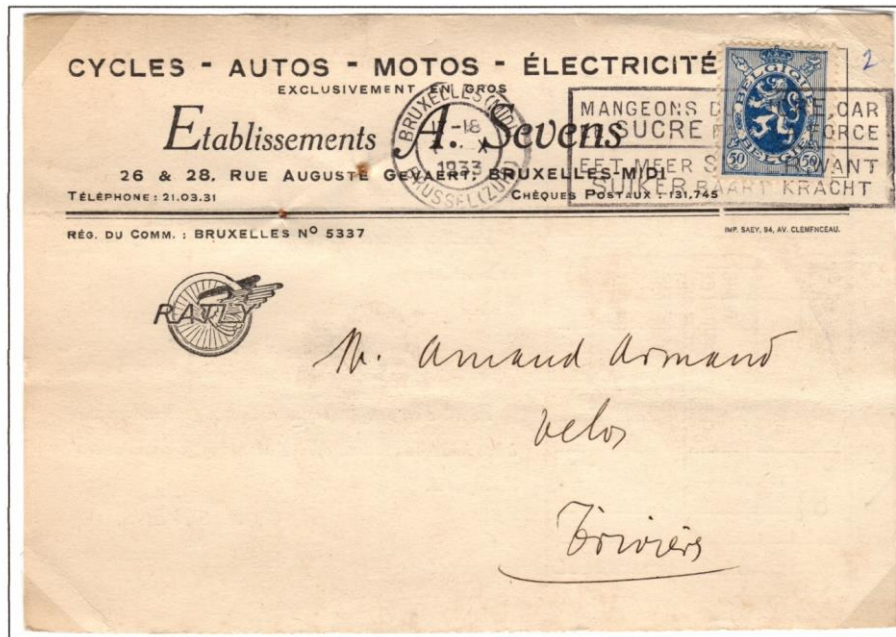 CYCLES - AUTOS - MOTOS - ÉLECTRICITÉ
EXCLUSIVEMENT EN GROS
Etablissements A. Sevens
26 & 28, RUE AUGUSTE GEVAERT, BRUXELLES-MIDI
TÉLÉPHONE: 21.03.31 CHÈQUES POSTAUX: 131.745
RÉG. DU COMM. : BRUXELLES Nº 5337
IMP. SAEY, 94, AV. CLEMENCEAU.
2
BELGIQUE
BELGIË
50 50
BRUXELLES (MIDI)
-18
1933
BRUSSEL (ZUID)
MANGEONS CAR
SUCRE FORCE
EET MEER WANT
SUIKER BAART KRACHT
RATLY
M. Amand Armand
velos
Trivières